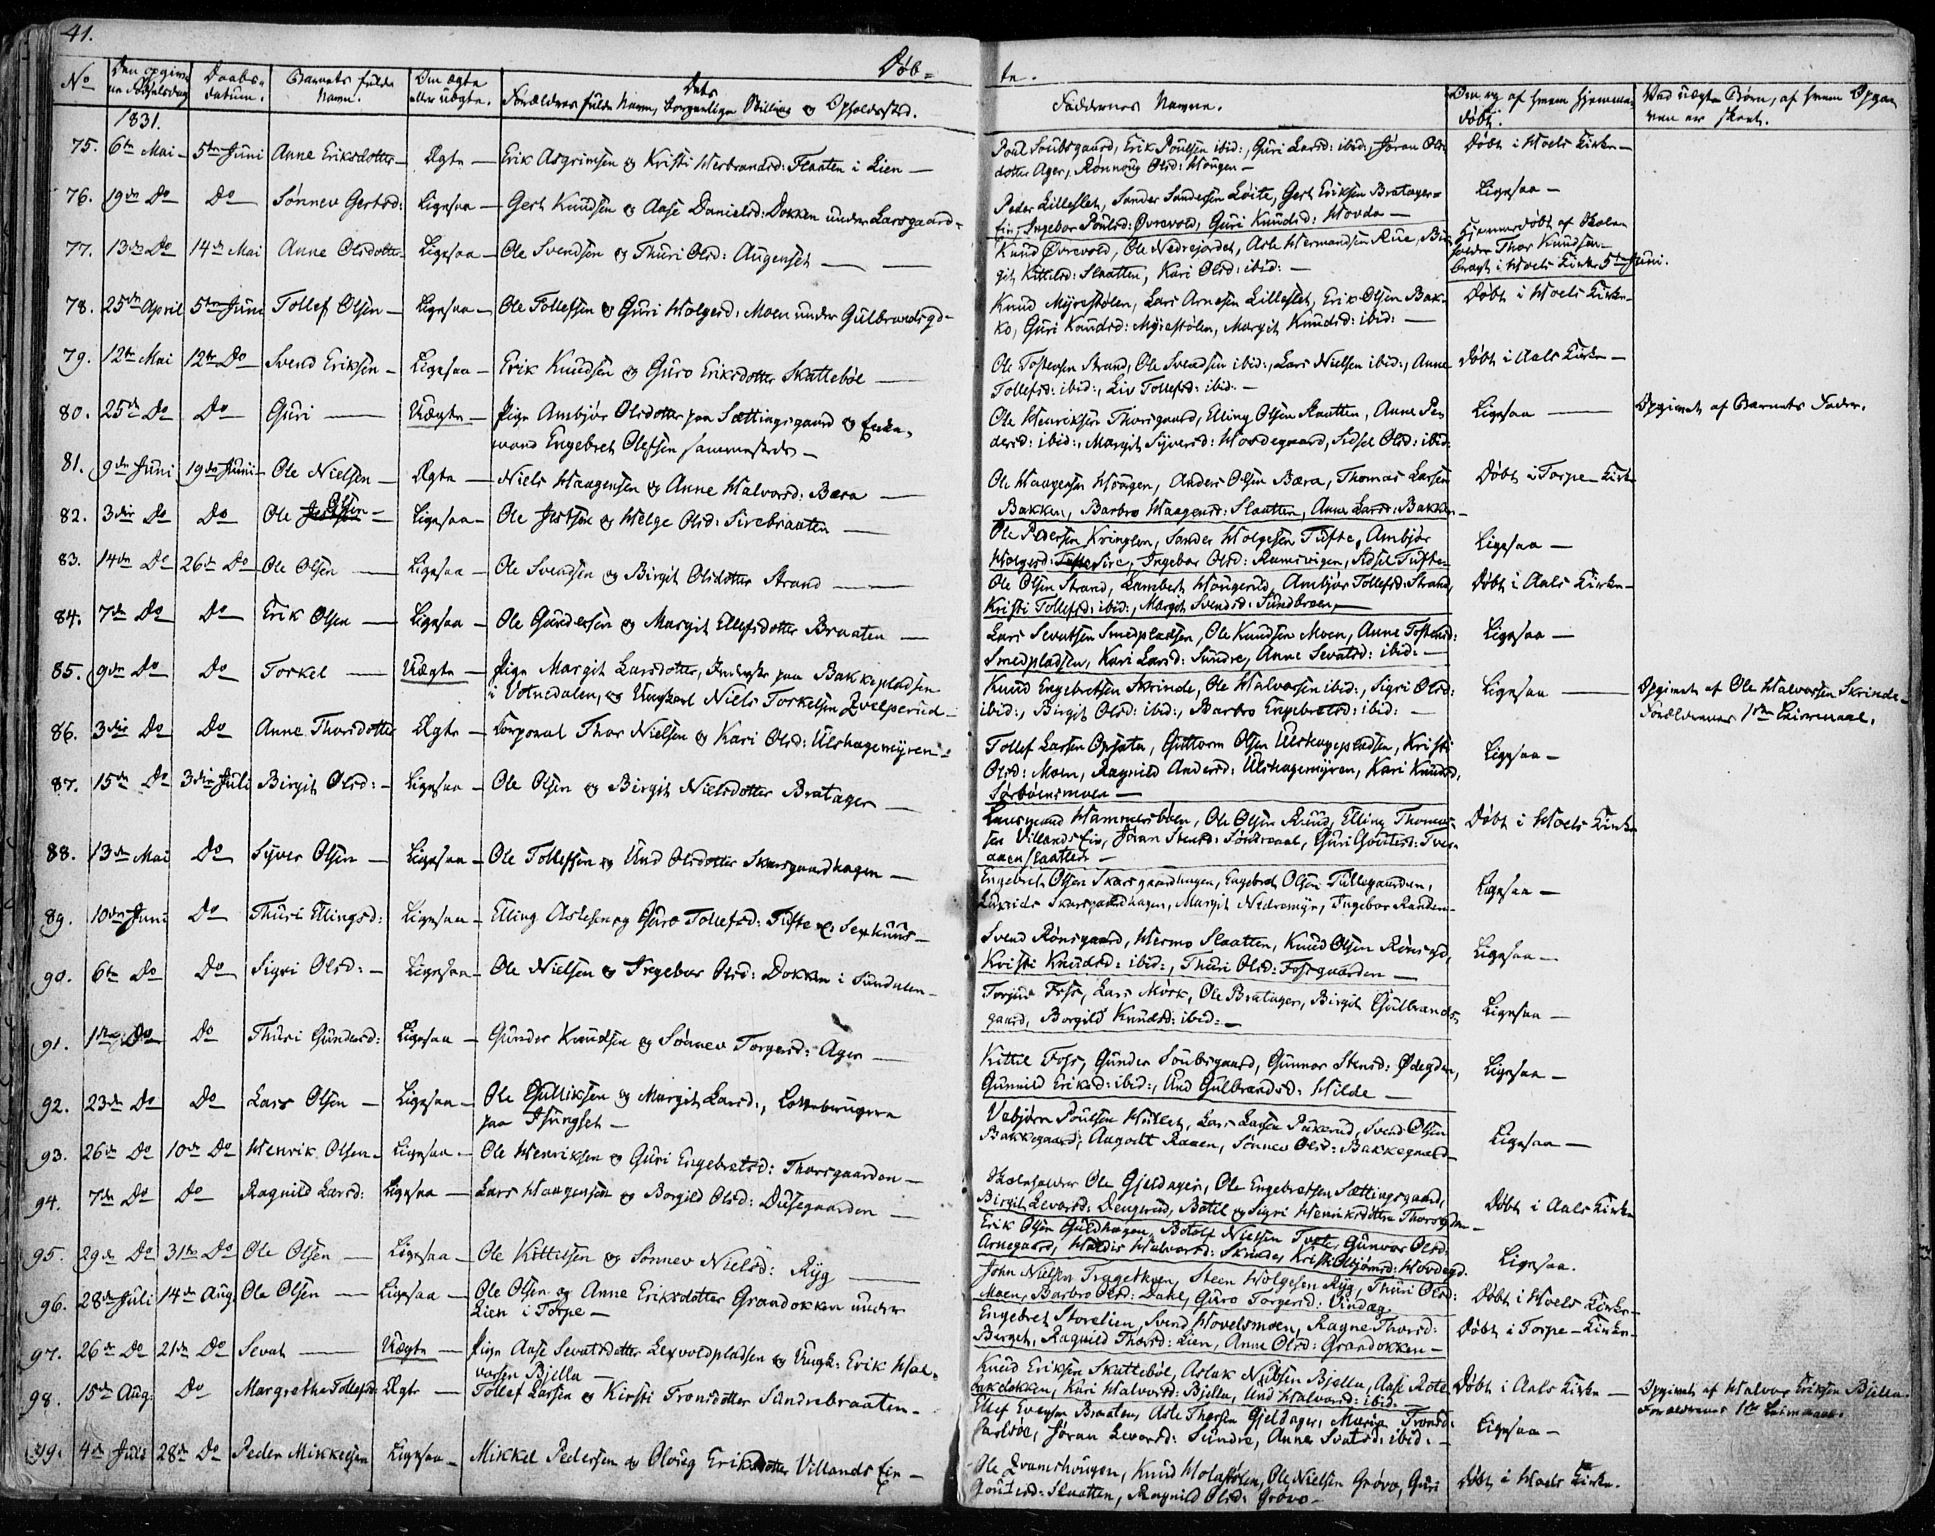 41.
Döb=
te.
No
Den opgivne Fødselsdag
Daabs-datum.
Barnets fulde Navn.
Om ægte eller uægte.
Dets Forældres fulde Navn, borgerlige Stilling og Opholdssted.
Faddernes Navne.
Om og af hvem hjemmedøbt.
Ved uægte Børn, af hvem Opgaven er skeet.
1831.
75. 6te Mai 5te Juni Anne Eriksdotter Ægte Erik Asgrimsen og Kristi Herbrandsd: Flaaten i Lien
Poul Soubsgaard, Erik Poulsen ibid:, Guri Larsd: ibid:, Jøran Ols-
dotter Ager, Rønnoug Olsd: Hougen
Døbt i Hoels Kirke
76. 19de Do Do Sønnev Gertsd: Ligesaa Gert Knudsen og Aase Danielsd: Dokken under Larsgaard
Peder Lilleslet, Sander Sandersen Løite, Gert Eriksen Bratager=
Ein, Ingebor Poulsd: Øvrevold, Guri Knudsd: Hovda
Ligesaa
77. 13de Do 14de Mai Anne Olsdotter Ligesaa Ole Svendsen og Thuri Olsd: Augenset
Knud Øvrevold, Ole Nedrejordet, Asle Hermandsen Rue, Bir-
git Kittilsd: Slaatten, Kari Olsd: ibid:
Hjemmedøbt af Skole
holder Thor Knudsen
bragt i Hoels Kirke 5te Juni.
78. 25de April 5te Juni Tollef Olsen Ligesaa Ole Tollefsen og Guri Holgersd: Moen under Gulbrandsgd
Knud Myrestølen, Lars Arnesen Lilleslet, Erik Olsen Bak-
ko, Guri Knudsd: Myrestølen, Margit Knudsd: ibid:
Døbt i Hoels Kirke
79. 12te Mai 12te Do Svend Eriksen Ligesaa Erik Knudsen og Guro Eriksdotter Skattebøe
Ole Tostensen Strand, Ole Svendsen ibid:, Lars Nielsen ibid:, Anne
Tollefsd: ibid:, Liv Tollefsd: ibid:
Døbt i Aals Kirke
80. 25de Do Do Guri Uægte Pige Ambjør Olsdotter paa Sættingsgaard og Enke-
mand Engebret Olefsen sammesteds
Ole Henriksen Thorsgaard, Elling Olsen Slaatten, Anne Pe-
dersd: ibid:, Margit Syversd: Hovdegaard, Sidsel Olsd: ibid:
Ligesaa
Opgivet af Barnets Fader.
81. 9de Juni 19de Juni Ole Nielsen Ægte Niels Haagensen og Anne Halvorsd: Bæra
Ole Haagensen Hougen, Anders Olsen Bæra, Thomas Larsen
Bakken, Barbro Haagensd: Slaatten, Anne Larsd: Bakken
Døbt i Torpe Kirke
82. 3die Do Do Ole Olsen Ligesaa Ole Jistsen og Helge Olsd: Sirebraaten
Ole Pedersen Kringlen, Sander Holgesen Tufte, Ambjør
Holgesd: Sire, Ingebor Olsd: Ramsvigen, Sidsel Tufte
Ligesaa
83. 14de Do 26de Do Ole Olsen Ligesaa Ole Svendsen og Birgit Olsdotter Strand
Ole Olsen Strand, Lambert Hougerud, Ambjør Tollefsd: Strand,
Kristi Tollefsd: ibid:, Margit Svendsd: Sundbroen
Døbt i Aals Kirke
84. 7de Do Do Erik Olsen Ligesaa Ole Gundersen og Margit Ellefsdotter Braaten
Lars Sevatsen Smedpladsen, Ole Knudsen Moen, Anne Tostensd:
Smedpladsen, Kari Larsd: Sundre, Anne Sevatsd: ibid:
Ligesaa
85. 9de Do Do Torkel Uægte Pige Margit Larsdotter, Inderste paa Bakkepladsen
i Votnedalen, og Ungkarl Niels Torkelsen Qvelperud
Knud Engebretsen Skrinde, Ole Halvorsen ibid:, Sigri Olsd:
ibid:, Birgit Olsd: ibid:, Barbro Engebretsd: ibid:
Ligesaa
Opgivet af Ole Halvorsen Skrinde
Forældrenes 1ste Leiermaal.
86. 3die Do Do Anne Thorsdotter Ægte Korporal Thor Nielsen og Kari Olsd: Ulshagemyren
Tollef Larsen Opsata, Guttorm Olsen Ulshagepladsen, Kristi
Olsd: Moen, Ragnild Andersd: Ulshagemyren, Kari Knudsd,
Sørbøensmoen
Ligesaa
87. 15de Do 3die Juli Birgit Olsd: Ligesaa Ole Olsen og Birgit Nielsdotter Bratager
Hammersbøen, Ole Olsen Ruud, Elling Thomes-
sen Villands Ein, Jøran Stensd: Sondreaal, Guri Goutesd: Tver-
aaenslaatten
Døbt i Hoels Kirke
88. 13de Mai Do Syver Olsen Ligesaa Ole Tollefsen og Und Olsdotter Skarsgaardhagen
Engebret Olsen Skarsgaardhagen, Engebret Olsen Tullegaarden,
Skarsgaardhagen, Margit Nedremyr, Ingebor Randen
Ligesaa
89. 10de Juni Do Thuri Ellingsd: Ligesaa Elling Aslesen og Guro Tollefsd: Tufte
Svend Rønsgaard, Hermo Slaatten, Knud Olsen Rønsgd,
Kristi Knudsd: ibid:, Thuri Olsd: Fossgaarden
Ligesaa
90. 6te Do Do Sigri Olsd: Ligesaa Ole Nielsen og Ingebor Olsd: Dokken i Sundalen
Torjus Foss, Lars Mørk, Ole Bratager, Birgit Gulbrands-
gaard, Borgild Knudsd: ibid:
Ligesaa
91. 1ste Do Do Thuri Gundersd: Ligesaa Gunder Knudsen og Sønnev Torgersd: Ager
Kittil Foss, Gunder Soubsgaard, Gunnor Stensd: Ødegden,
Gunnild Eriksd: ibid:, Und Gulbrandsd: Hilde
Ligesaa
92. 23de Do Do Lars Olsen Ligesaa Ole Gulliksen og Margit Larsd:, Lottebrugere
paa Isungset
Vebjørn Poulsen Hullet, Lars Larsen Pukerud, Svend Olsen
Bakkegaard, Aagodt Raaen, Sønnev Olsd: Bakkegaard
Ligesaa
93. 26de Do 10de Do Henrik Olsen Ligesaa Ole Henriksen og Guri Engebretsd: Thorsgaarden
Skoleholder Ole Gjeldager, Ole Engebretsen Sættingsgaard,
Birgit Levorsd: Dengerud, Botil og Sigri Henriksdøttre Thorsgden
Døbt i Aals Kirke
94. 7de Do Do Ragnild Larsd: Ligesaa Lars Haagensen og Borgild Olsd: Dusegaarden
Erik Olsen Guldhagen, Botolf Nielsen Tveto, Gunvor Olsd:
Arnegaard, Haldis Halvorsd: Skrinde, Kristi Asbjørnsd: Hovdegd.
Ligesaa.
95. 29de Do 31te Do Ole Olsen Ligesaa Ole Kittilsen og Sønnev Nielsd: Ryg
John Nielsen Tragethoen, Steen Holgesen Ryg, Thuri Olsd:
Moen, Barbro Olsd: Dahl, Guro Torgersd: Vindæg
Døbt i Hoels Kirke
96. 28de Juli 14de Aug. Ole Olsen Ligesaa Ole Olsen og Anne Eriksdotter Grandokken under
Lien i Torpe
Engebret Storelien, Svend Hovelsmoen, Ragne Thorsd:
Berget, Ragnild Thorsd: Lien, Anne Olsd: Grandokken
Døbt i Torpe Kirke
97. 26de Do 21de Do Sevat Uægte Pige Aase Sevatsdotter Lexvoldpladsen og Ungk: Erik Hal-
vorsen Bjella
Knud Eriksen Skattebøl, Aslak Nubsen Bjella, Aase Rote-
bakdokken, Kari Halvorsd: Bjella, Und Halvorsd: ibid:
Døbt i Aals Kirke
Opgivet af Halvor Eriksen Bjella.
Forældrenes 1ste Leiermaal.
98. 15de Aug. Do Margrethe Tollefsd: Ægte Tollef Larsen og Kirsti Tronsdotter Sundrebraaten
Ellef Evensen Braaten, Asle Thorsen Gjeldager, Maria Tronsd:
Jarlsoe, Jøran Levorsd: Sundre, Anne Svatsd: ibid:
Ligesaa
99. 4de Juli 28de Do Peder Mikkelsen Ligesaa Mikkel Pedersen og Oloug Eriksdotter Villands Ein
Ole Qvamshougen, Knud Holestølen, Ole Nielsen Grøvo, Guri
Goutesd: Slaatten, Ragnild Olsd: Grøvo
Døbt i Hoels Kirke.